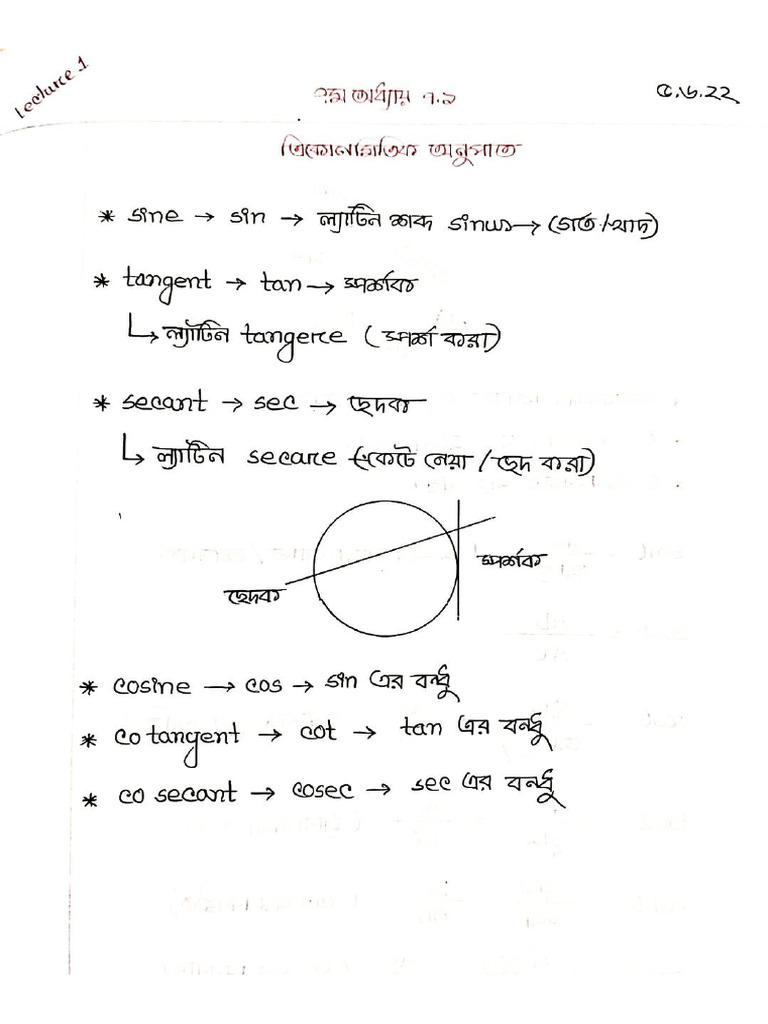 Lecture 1
৭ম অধ্যায় ৭.১
৫.৬.২২
ত্রিকোনোমিতিক অনুপাত
* sine → sin → ল্যাটিন শব্দ sinus → (গর্ত/খাদ)
* tangent → tan → স্পর্শক
↳ ল্যাটিন tangere (স্পর্শ করা)
* secant → sec → ছেদক
↳ ল্যাটিন secare (কেটে নেয়া/ছেদ করা)
স্পর্শক
ছেদক
* cosine → cos → sin এর বন্ধু
* co tangent → cot → tan এর বন্ধু
* co secant → cosec → sec এর বন্ধু